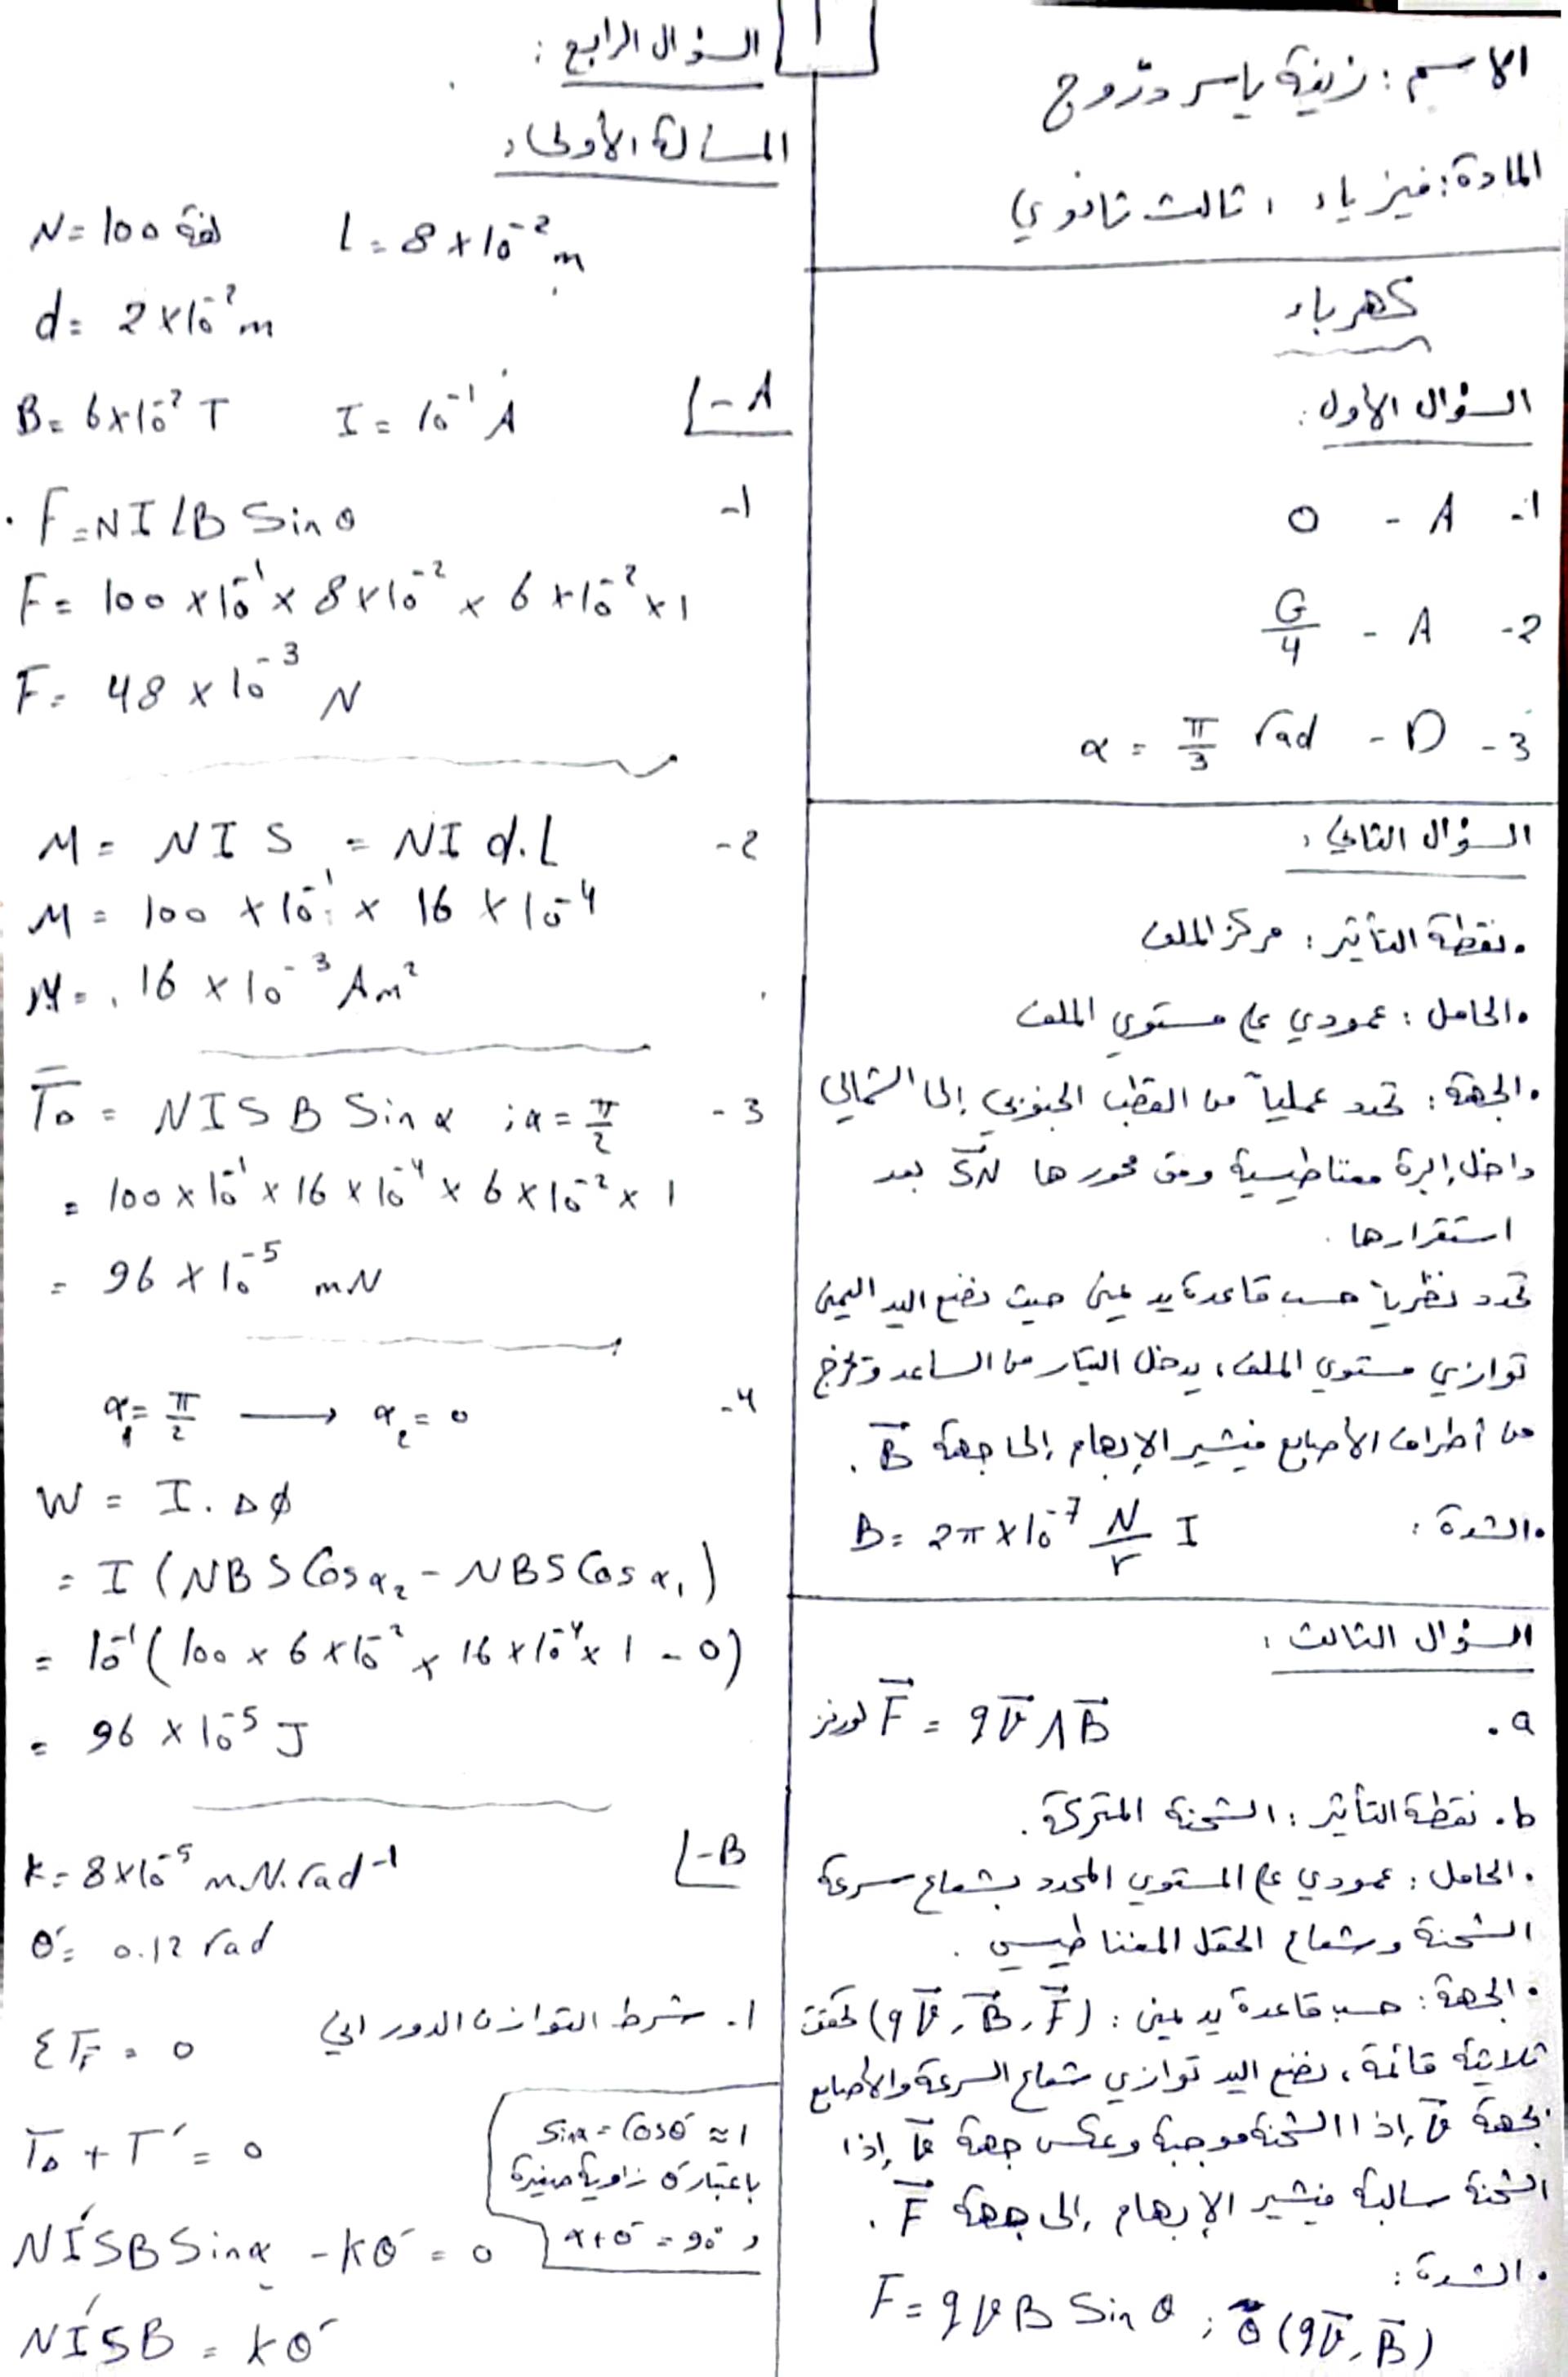 1
الاسم: زينة ياسر درّوج
المادة: فيزياء، ثالث ثانوي
كهرباء
السؤال الأول:
1- A - 0
2- A - G/4
3- D - α = π/3 rad
السؤال الثاني:
• نقطة التأثير: مركز الملف
• الحامل: عمودي على مستوي الملف
• الجهة: تحدد عملياً من القطب الجنوبي إلى الشمالي
داخل إبرة مغناطيسية وفق محورها SN بعد
استقرارها.
تحدد نظرياً حسب قاعدة يد يمنى حيث نضع اليد اليمنى
توازي مستوي الملف، يدخل التيار من الساعد ويخرج
من أطراف الأصابع فيشير الإبهام إلى جهة B⃗.
• الشدة: B = 2π×10⁻⁷ N/r I
السؤال الثالث:
a. F⃗ لورنز = qv⃗ Λ B⃗
b. نقطة التأثير: الشحنة المتحركة.
• الحامل: عمودي على المستوي المحدد بشعاع سرعة
الشحنة وشعاع الحقل المغناطيسي.
• الجهة: حسب قاعدة يد يمنى: (qv⃗, B⃗, F⃗) تحقق
ثلاثية قائمة، نضع اليد توازي شعاع السرعة والأصابع
بجهة v⃗ إذا الشحنة موجبة وعكس جهة v⃗ إذا
الشحنة سالبة فيشير الإبهام إلى جهة F⃗.
• الشدة:
F = qvB Sin θ ; θ (qv⃗, B⃗)
السؤال الرابع:
المسألة الأولى:
N = 100 لفة L = 8×10⁻² m
d = 2×10⁻² m
B = 6×10⁻² T I = 10⁻¹ A
A-
1- F = NILB Sin θ
F = 100 × 10⁻¹ × 8×10⁻² × 6×10⁻² × 1
F = 48 × 10⁻³ N
2- M = NIS = NI d.L
M = 100 × 10⁻¹ × 16 × 10⁻⁴
M = 16 × 10⁻³ Am²
3- T̄Δ = NISB Sin α ; α = π/2
= 100×10⁻¹ × 16×10⁻⁴ × 6×10⁻² × 1
= 96 × 10⁻⁵ mN
4- α₁ = π/2 ⟶ α₂ = 0
W = I . Δϕ
= I (NBS Cos α₂ - NBS Cos α₁)
= 10⁻¹ (100 × 6×10⁻² × 16×10⁻⁴ × 1 - 0)
= 96 × 10⁻⁵ J
B-
k = 8×10⁻⁵ m.N.rad⁻¹
θ′ = 0.12 rad
1. شرط التوازن الدوراني ΣT̄ = 0
T̄Δ + T̄′ = 0
Sin α = Cos θ′ ≈ 1
باعتبار θ′ زاوية صغيرة
و α+θ′ = 90°
NI′SB Sin α - kθ′ = 0
NI′SB = kθ′